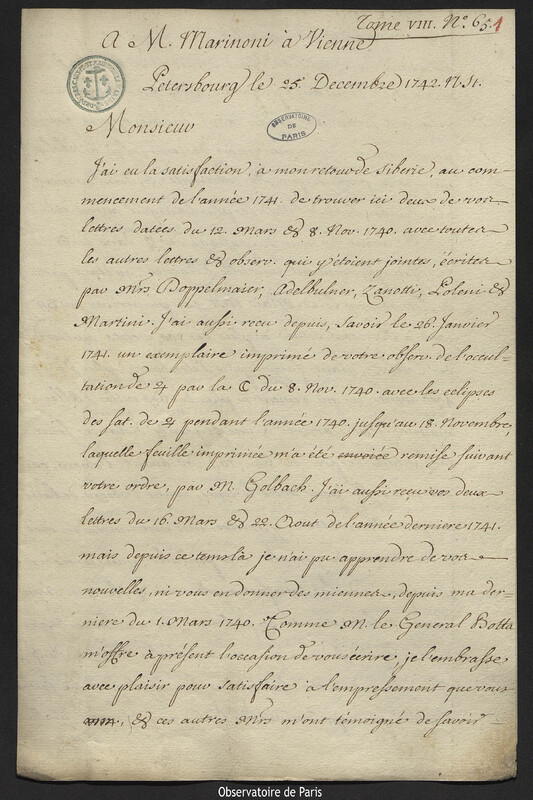 Tome VIII. N.º 65. 1
A M. Marinoni à Vienne
Petersbourg le 25 Decembre 1742. N. St.
OBSERVATOIRE DE PARIS
Monsieur
J'ai eu la satisfaction, à mon retour de Siberie, au com-
mencement de l'année 1741. de trouver ici deux de vos
lettres datées du 12. Mars & 8. Nov. 1740. avec toutes
les autres lettres & observ. qui y étoient jointes, écrites
par Mrs Doppelmaier, Adelbulner, Zanotti, Poleni &
Martini. J'ai aussi reçu depuis, savoir le 26. Janvier
1741. un exemplaire imprimé de votre observ. de l'occul-
tation de ♃ par la ☾ du 8. Nov. 1740. avec les eclipses
des sat. de ♃ pendant l'année 1740. jusqu'au 18. Novembre,
laquelle feuille imprimée m'a été envoiée remise suivant
votre ordre, par M. Golbach. J'ai aussi reçu vos deux
lettres du 16. Mars & 22. Aout de l'année derniere 1741.
mais depuis ce tems là je n'ai pu apprendre de vos
nouvelles, ni vous en donner des miennes, depuis ma der-
niere du 1. Mars 1740. Comme M. le General Botta
m'offre à présent l'occasion de vous écrire, je l'embrasse
avec plaisir pour satisfaire à l'empressement que vous
, & ces autres Mrs m'ont témoigné de savoir
Observatoire de Paris